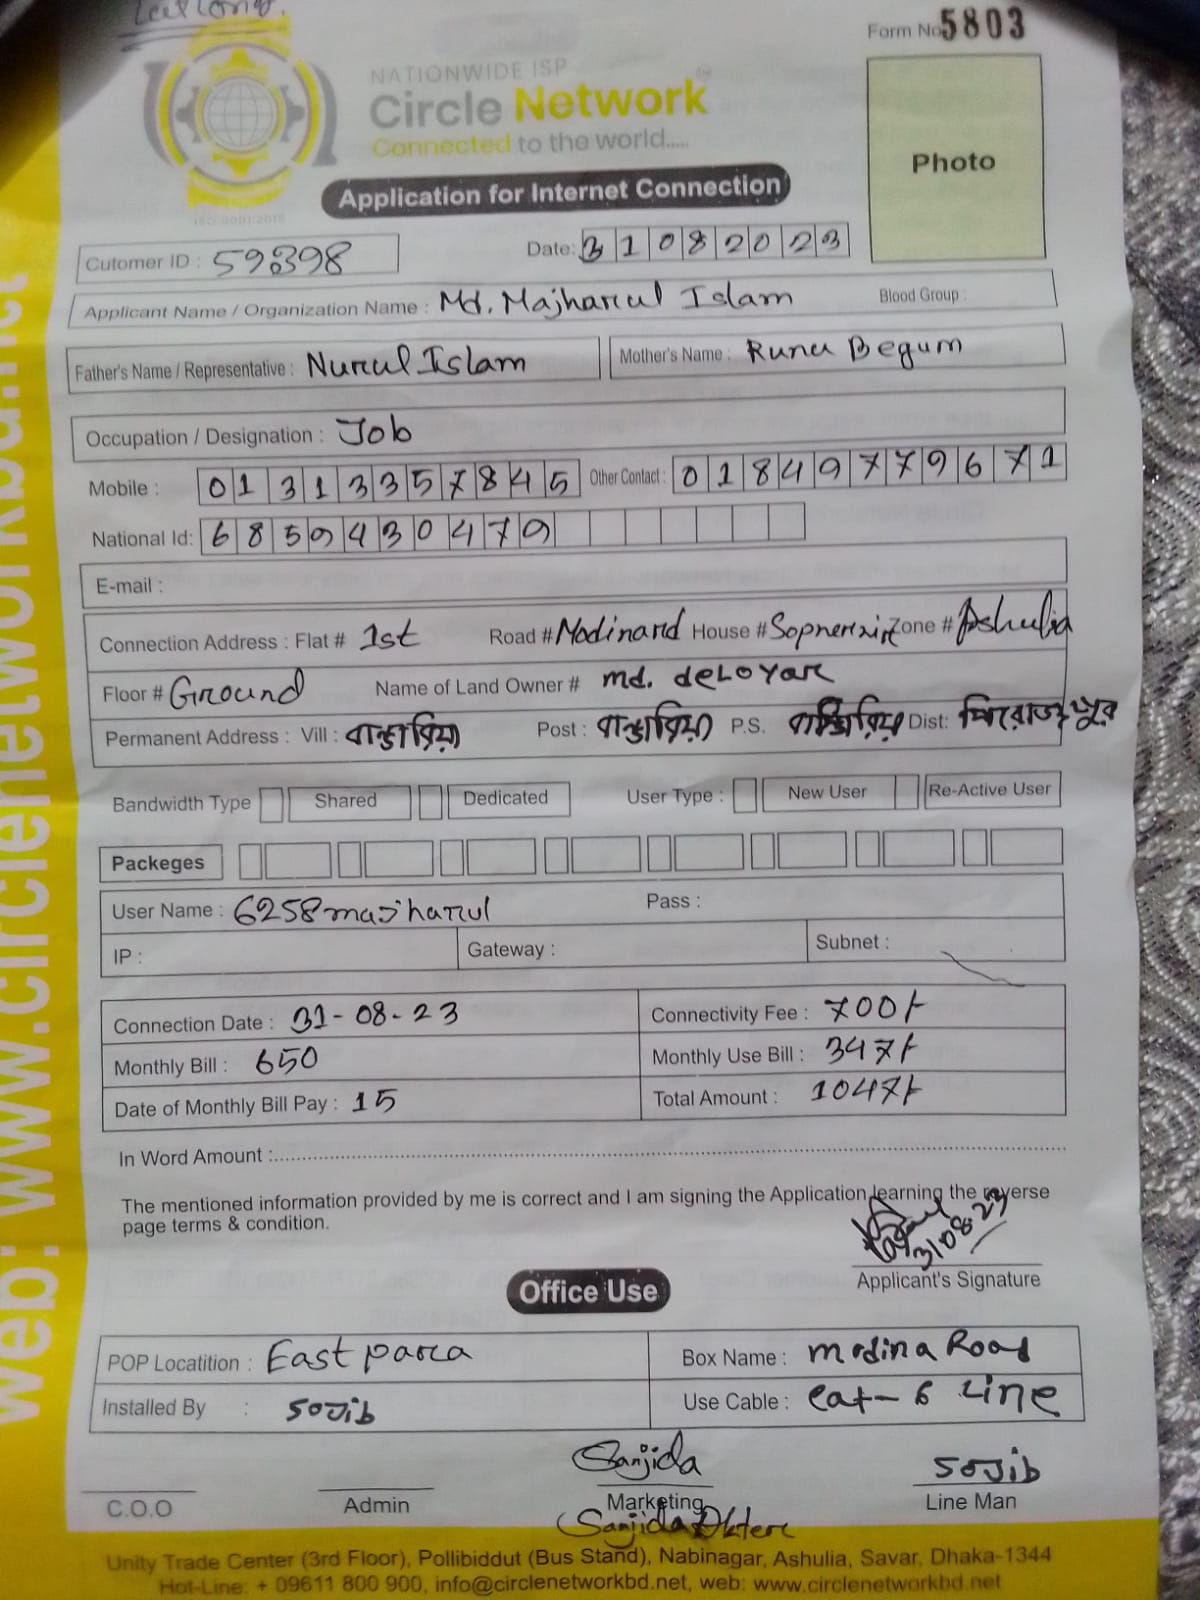 Form No 5803
NATIONWIDE ISP
Circle Network
Connected to the world.....
ISO 9001:2015
Application for Internet Connection
Photo
Cutomer ID : 59398
Date: 31082023
Applicant Name / Organization Name : Md. Majharul Islam Blood Group :
Father's Name / Representative : Nurul Islam
Mother's Name : Runu Begum
Occupation / Designation : Job
Mobile : 01313357845 Other Contact : 01849779671
National Id: 6859430479
E-mail :
Connection Address : Flat # 1st Road # House # Zone # Ashulia
Floor # Ground Name of Land Owner # md. deLoyar
Permanent Address : Vill : Post : P.S. Dist: পিরোজপুর
Bandwidth Type Shared Dedicated User Type : New User Re-Active User
Packeges
User Name : 6258majharul Pass :
IP : Gateway : Subnet :
Connection Date : 31-08-23 Connectivity Fee : 700/-
Monthly Bill : 650 Monthly Use Bill : 347/-
Date of Monthly Bill Pay : 15 Total Amount : 1047/-
In Word Amount :
The mentioned information provided by me is correct and I am signing the Application learning the reverse
page terms & condition.
3108.23
Applicant's Signature
Office Use
POP Locatition : East para Box Name : modina Road
Installed By : Sojib Use Cable : cat-6 Line
Sanjida Sojib
C.O.O Admin Marketing Line Man
Sanjida Akter
Unity Trade Center (3rd Floor), Pollibiddut (Bus Stand), Nabinagar, Ashulia, Savar, Dhaka-1344
Hot-Line: + 09611 800 900, info@circlenetworkbd.net, web: www.circlenetworkbd.net
web: www.circlenetworkbd.net